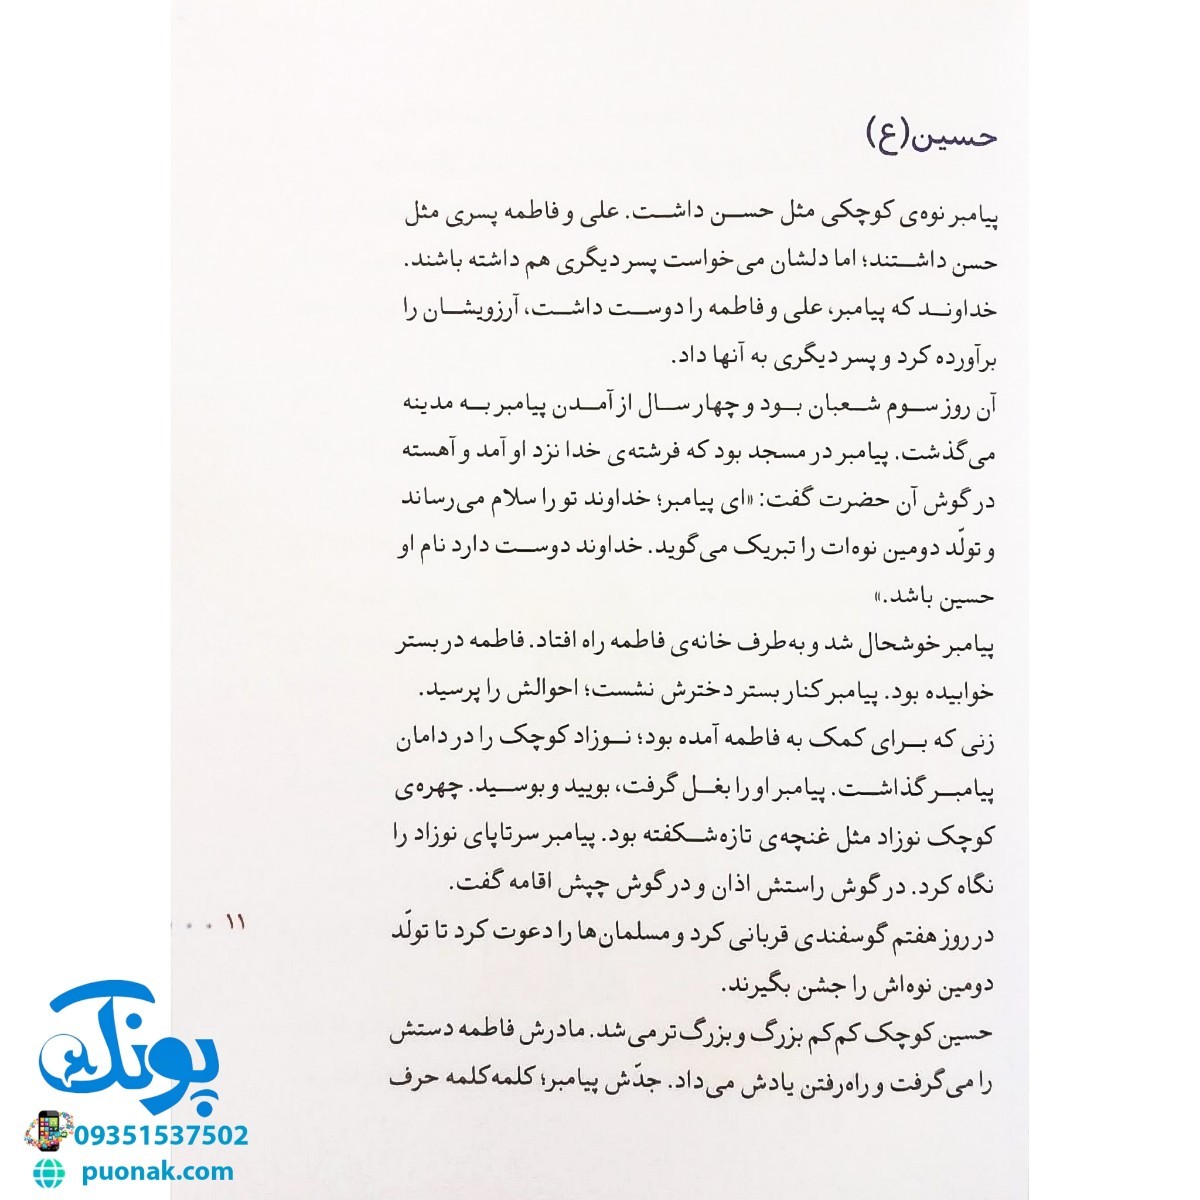 حسین(ع)
پیامبر نوه‌ی کوچکی مثل حسن داشت. علی و فاطمه پسری مثل
حسن داشتند؛ اما دلشان می‌خواست پسر دیگری هم داشته باشند.
خداوند که پیامبر، علی و فاطمه را دوست داشت، آرزویشان را
برآورده کرد و پسر دیگری به آنها داد.
آن روز سوم شعبان بود و چهار سال از آمدن پیامبر به مدینه
می‌گذشت. پیامبر در مسجد بود که فرشته‌ی خدا نزد او آمد و آهسته
در گوش آن حضرت گفت: «ای پیامبر؛ خداوند تو را سلام می‌رساند
و تولّد دومین نوه‌ات را تبریک می‌گوید. خداوند دوست دارد نام او
حسین باشد.»
پیامبر خوشحال شد و به‌طرف خانه‌ی فاطمه راه افتاد. فاطمه در بستر
خوابیده بود. پیامبر کنار بستر دخترش نشست؛ احوالش را پرسید.
زنی که برای کمک به فاطمه آمده بود؛ نوزاد کوچک را در دامان
پیامبر گذاشت. پیامبر او را بغل گرفت، بویید و بوسید. چهره‌ی
کوچک نوزاد مثل غنچه‌ی تازه‌شکفته بود. پیامبر سرتاپای نوزاد را
نگاه کرد. در گوش راستش اذان و در گوش چپش اقامه گفت.
در روز هفتم گوسفندی قربانی کرد و مسلمان‌ها را دعوت کرد تا تولّد
دومین نوه‌اش را جشن بگیرند.
حسین کوچک کم‌کم بزرگ و بزرگ‌تر می‌شد. مادرش فاطمه دستش
را می‌گرفت و راه‌رفتن یادش می‌داد. جدّش پیامبر؛ کلمه‌کلمه حرف
۱۱
پونک
09351537502
puonak.com